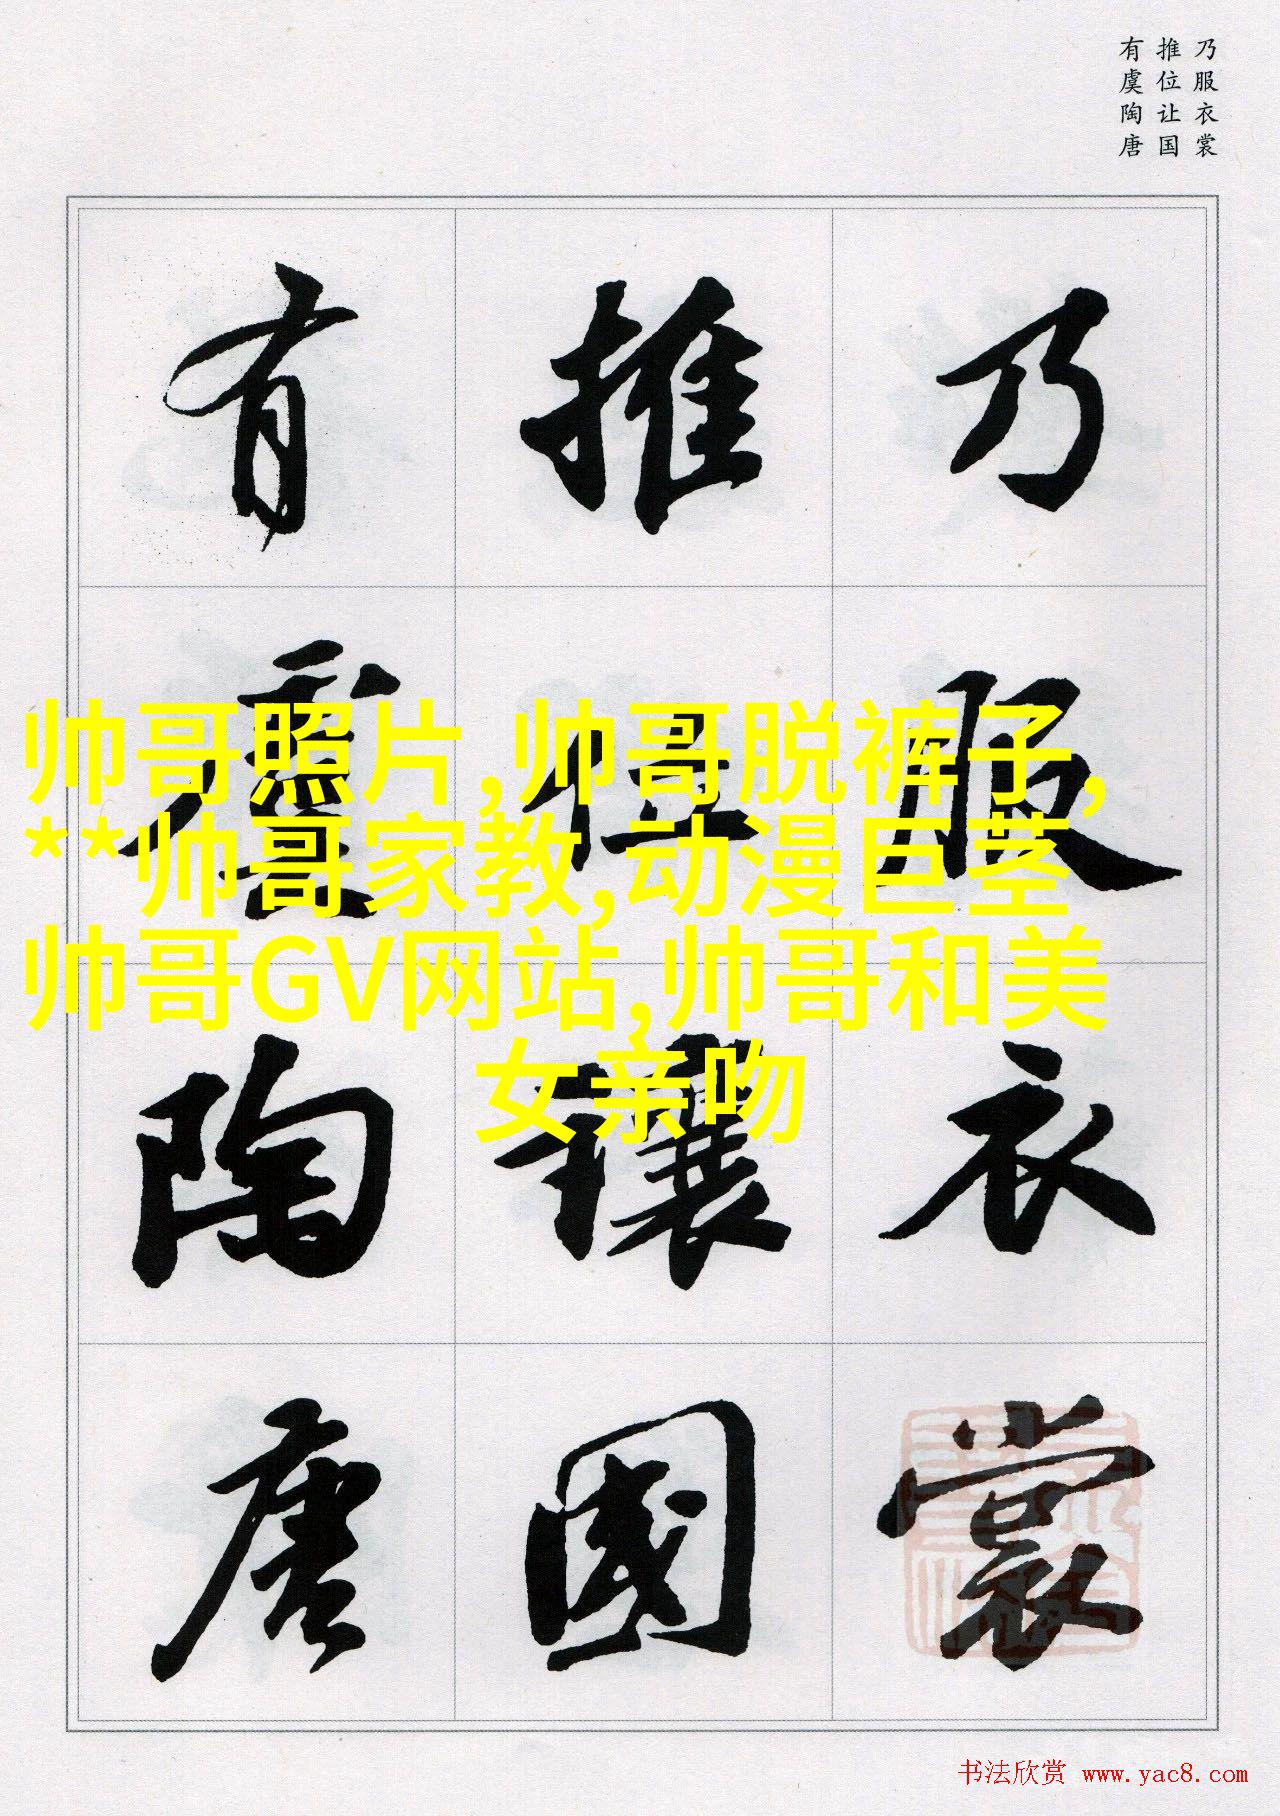 乃服衣裳
推位让国
有虞陶唐
乃服衣裳
推位让國
有虞陶唐
帅哥照片,帅哥脱裤子,
**帅哥家教,动漫巨茎
帅哥GV网站,帅哥和美
女亲吻
书法欣赏 www.yac8.com